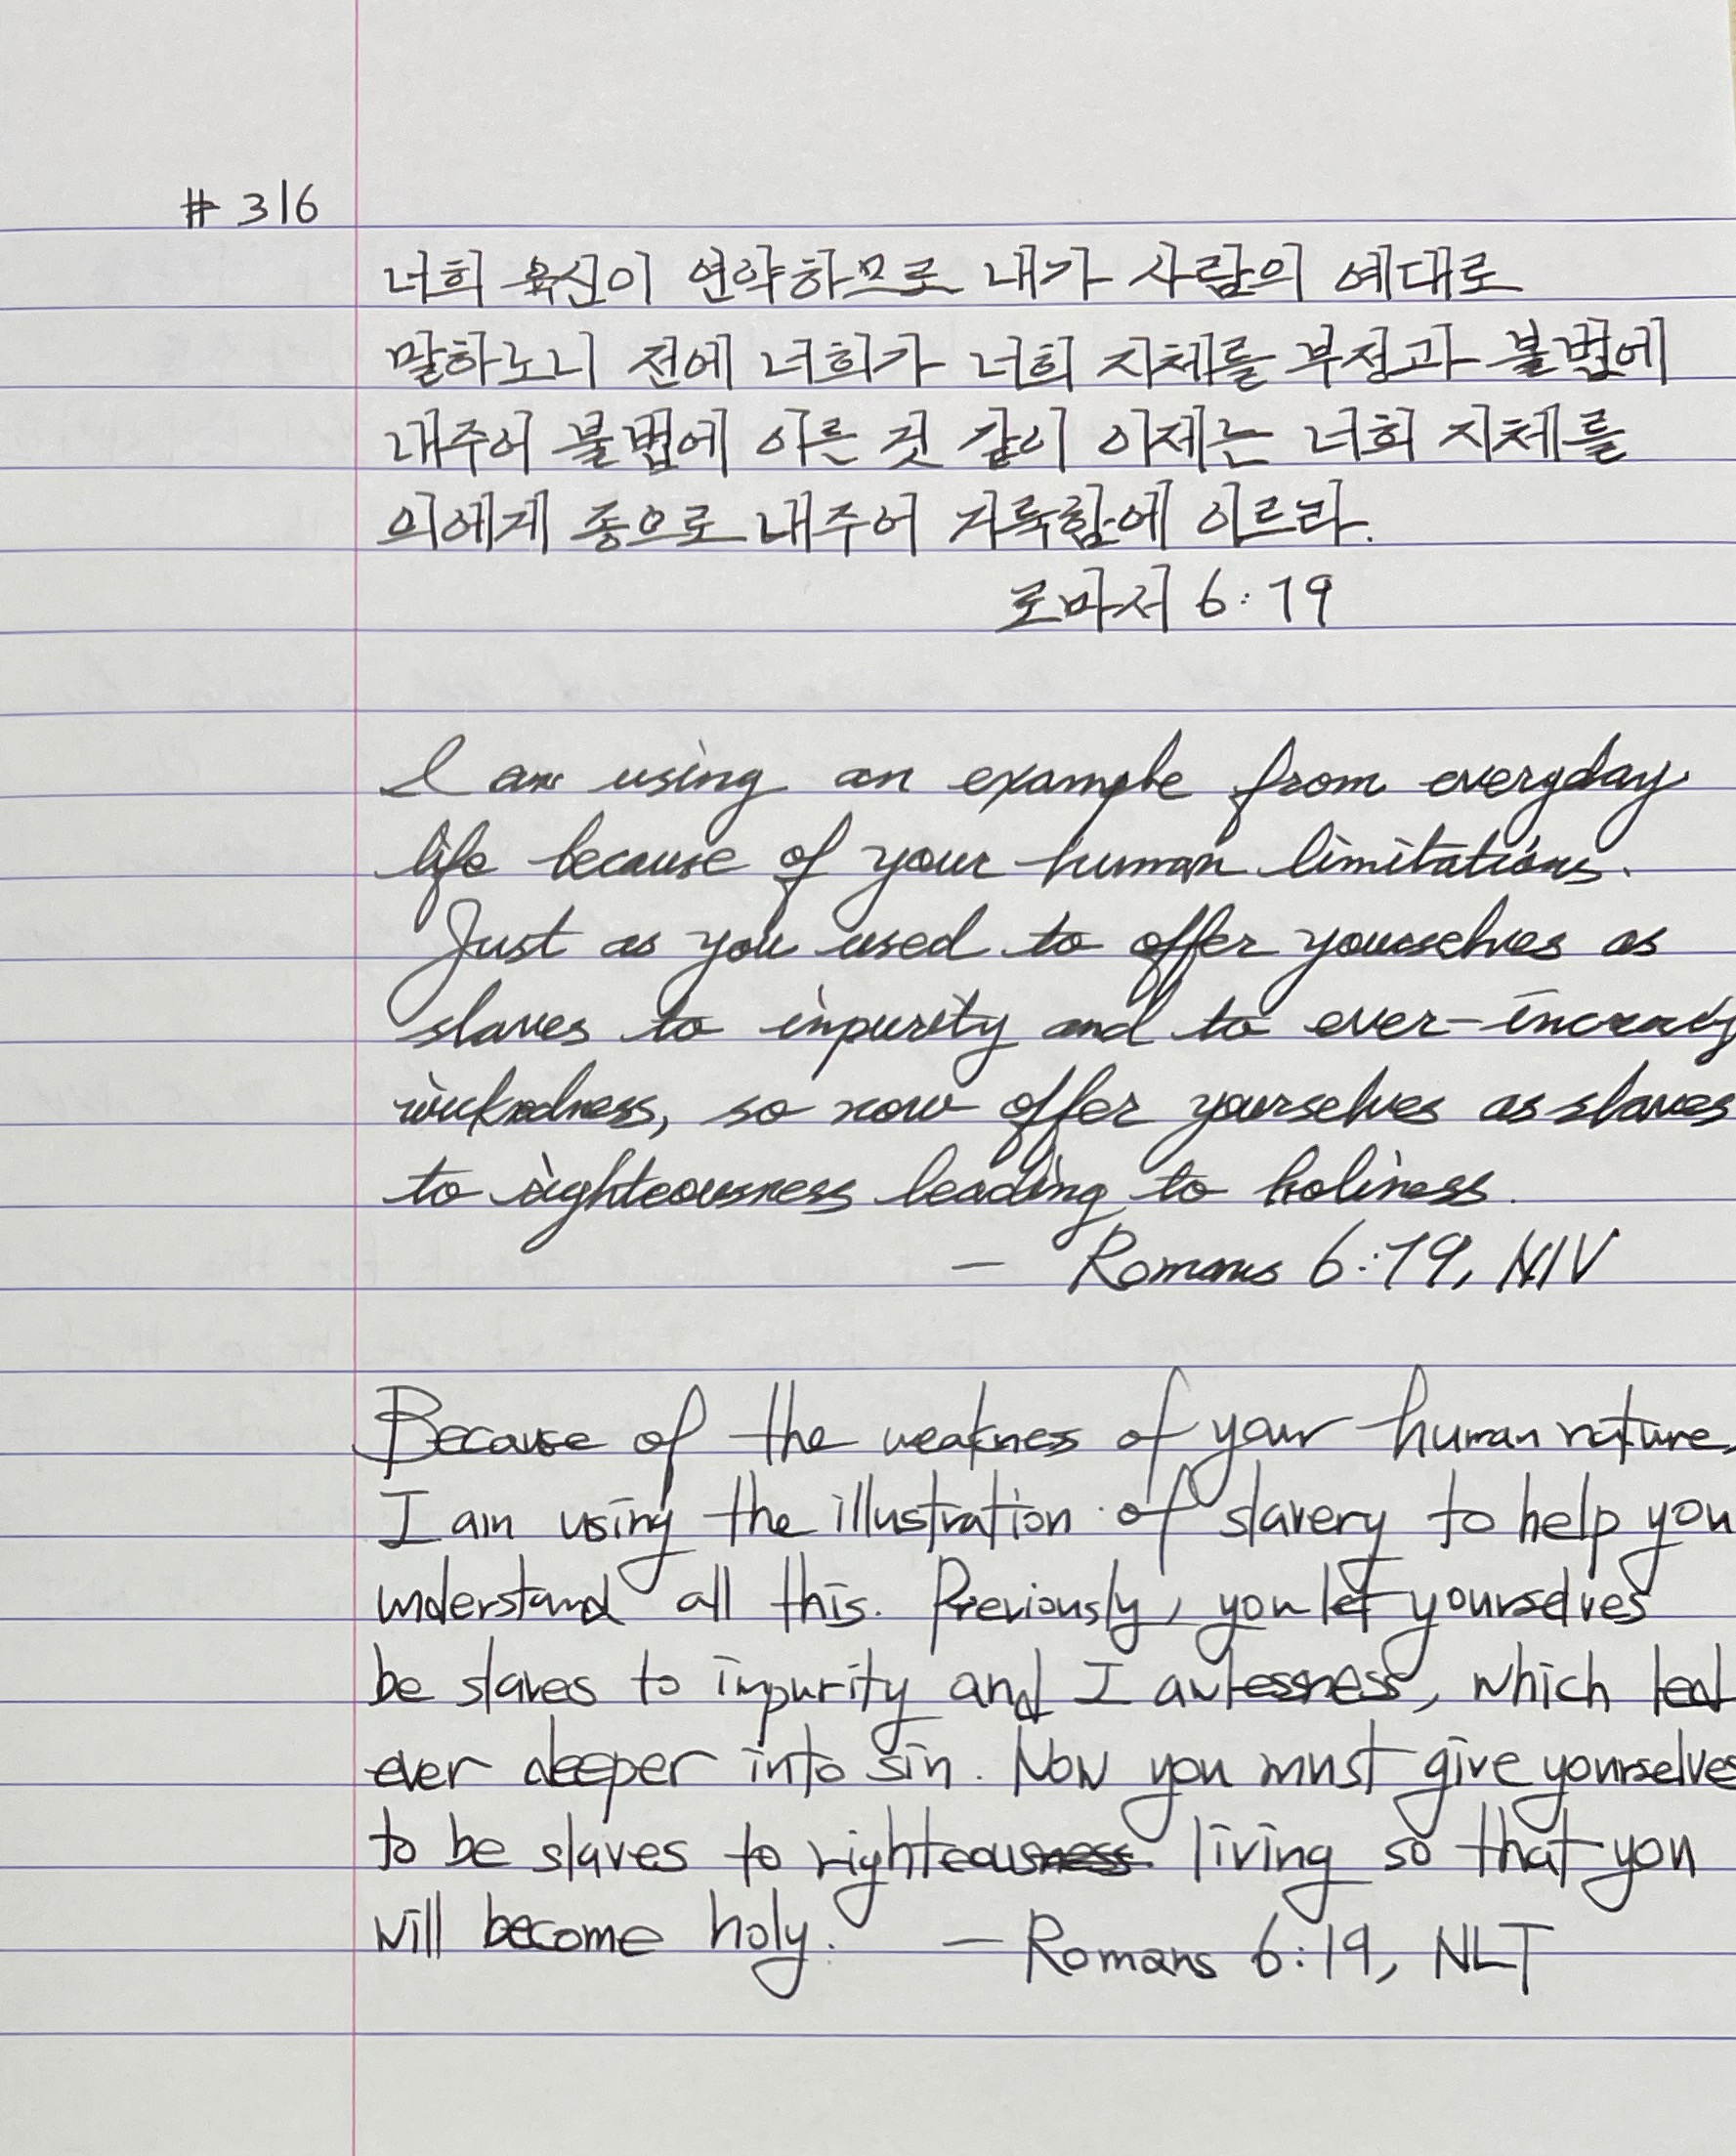 # 316
너희 육신이 연약하므로 내가 사람의 예대로
말하노니 전에 너희가 너희 지체를 부정과 불법에
내주어 불법에 이른 것 같이 이제는 너희 지체를
의에게 종으로 내주어 거룩함에 이르라.
로마서 6:19
I am using an example from everyday
life because of your human limitations.
Just as you used to offer yourselves as
slaves to impurity and to ever-increasing
wickedness, so now offer yourselves as slaves
to righteousness leading to holiness.
— Romans 6:19, NIV
Because of the weakness of your human nature,
I am using the illustration of slavery to help you
understand all this. Previously, you let yourselves
be slaves to impurity and lawlessness, which led
ever deeper into sin. Now you must give yourselves
to be slaves to righteous living so that you
will become holy. — Romans 6:19, NLT